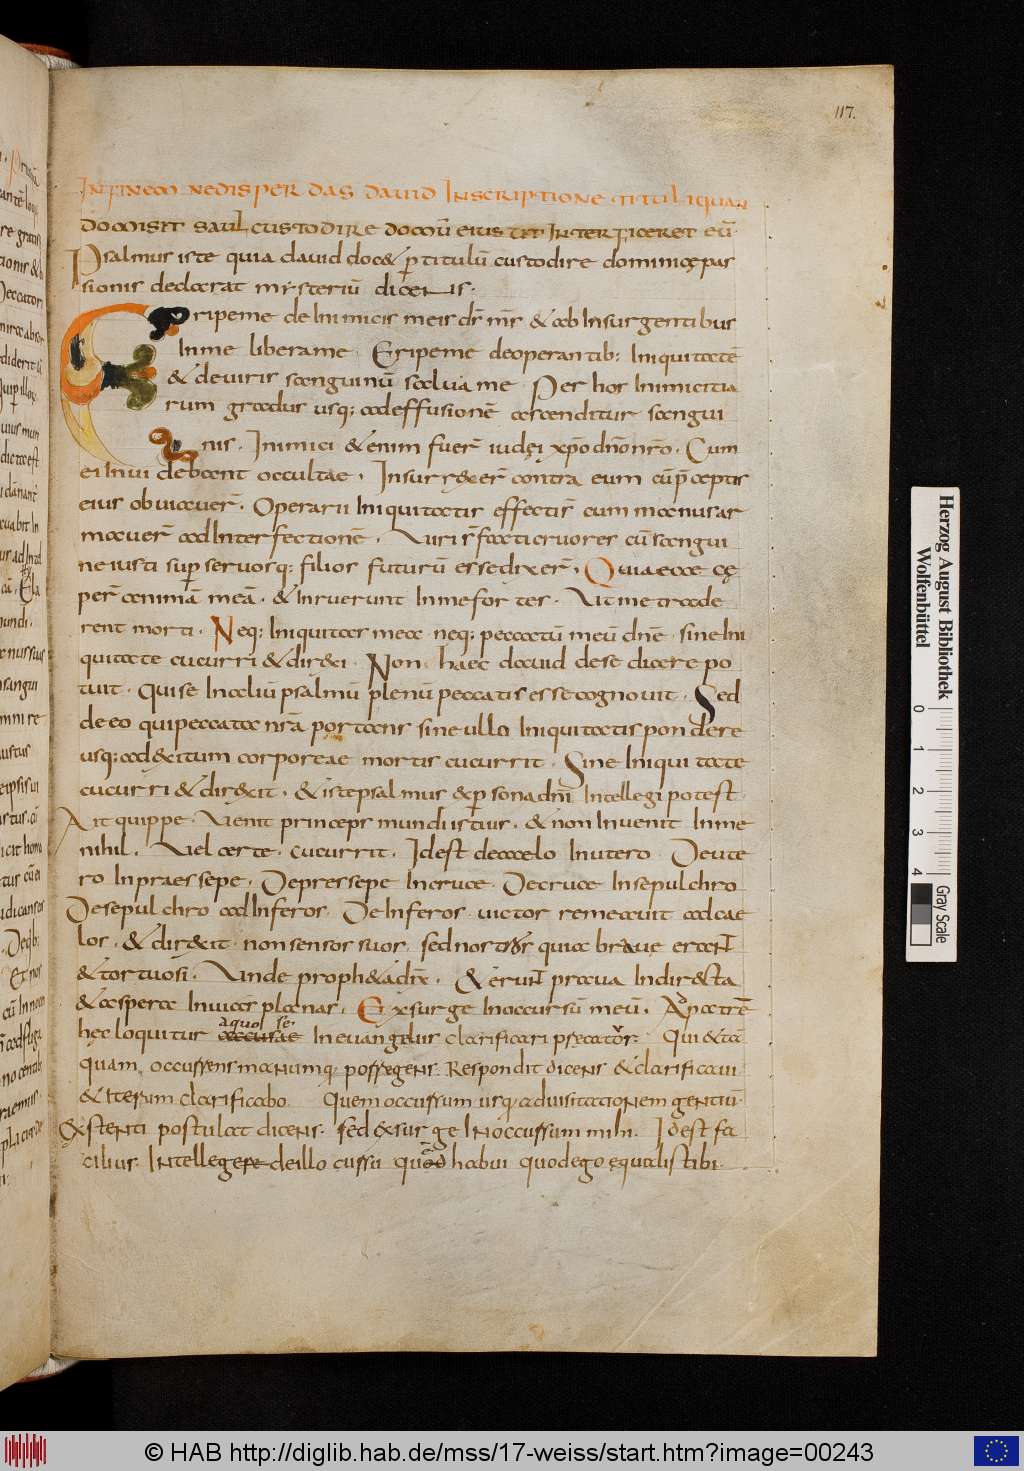 117.
IN FINEM NE DISPERDAS DAVID INSCRIPTIONE TITULI QUAN
DO MISIT SAUL CUSTODIRE DOMŪ EIUS UT INTERFICERET EŪ
Psalmus iste quia david doc& p titulū custodire dominicę pas
sionis dedcerat mysteriū dicentis.
Eripe me de inimicis meis ds ms & ab insurgentibus
in me libera me. Eripe me de operantib; iniquitatē
& de viris sanguinū salva me. Per hos inimicitia
rum gradus usq; ad effusionē ascenditur sangui
nis. Inimici & enim fuer̄ iudęi xpō dnō nrō. Cum
ei invidebant occultae. Insurrexer̄ contra eum cū p̄ceptis
eius obviaver̄. Operarii iniquitatis effecti s̄ cum manus ar
maver̄ ad interfectionē. Viri s̄ facti cruores cū sangui
ne iusti sup servosq; filios futurū esse dixer̄. Quia ecce cę
per̄ animā meā. & inruerunt in me fortes. Ut me trade
rent morti. Neq; iniquitas mea neq; peccatū meū dnē. sine ini
quitate cucurri & direxi. Non haec david de se dicere po
tuit. qui se in aliū psalmū plenū peccatis esse cognovit. Sed
de eo qui peccata nr̄a portans sine ullo iniquitatis pondere
usq; ad exitum corporeae mortis cucurrit. Sine iniquitate
cucurri & direxit. & iste psalmus ex p̱sona dn̄i intellegi potest.
Ait quippe. Venit princeps mundi istius. & non invenit in me
nihil. Vel certe. cucurrit. Id est de caelo in utero. De ute
ro in praessepe. De pressepe in cruce. De cruce in sepulchro
De sepulchro ad inferos. De inferos victor remeavit ad cae
los. & direxit. non sensos suos. sed nostros quia brave erant
& tortuosi. Unde proph&a dix̄. & erunt prava in directa
& aspera in vias planas. Exsurge in occursū meū. A patre
hęc loquitur accusae in evangelus clarificari pręcator: Qui & tā
a quo se
quam occussens manumq; possegens. Respondit dicens & clarificavi
& iterum clarificabo. Quem occussum usq; ad visitationem gentiū
exstenti postulat dicens. sed exsurge in occussum mihi. Id est fa
cilius. Intellegere de illo cussu quod habui quod ego equalis tibi.
Herzog August Bibliothek
Wolfenbüttel
0 1 2 3 4
Gray Scale
© HAB http://diglib.hab.de/mss/17-weiss/start.htm?image=00243